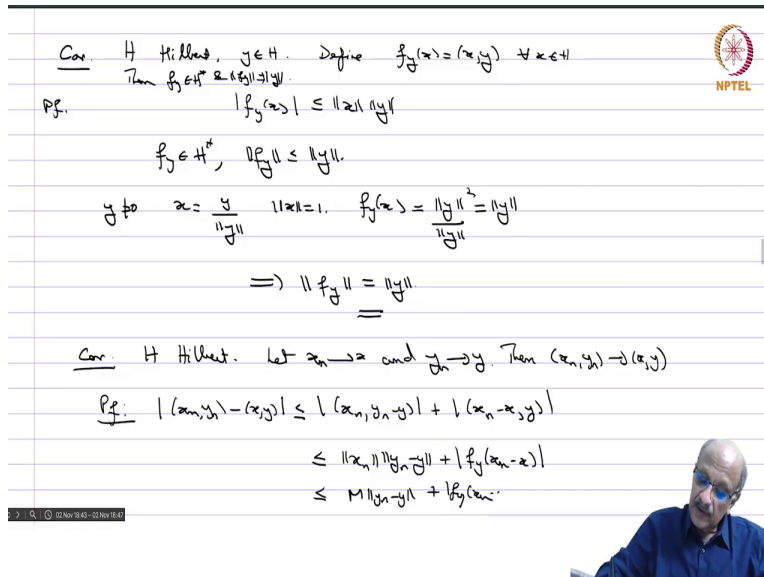 Cor. H Hilbert, y ∈ H. Define f_y(x) = (x, y) ∀ x ∈ H
Then f_y ∈ H* & ‖f_y‖ = ‖y‖.
Pf. |f_y(x)| ≤ ‖x‖ ‖y‖
f_y ∈ H*, ‖f_y‖ ≤ ‖y‖.
y ≠ 0 x = y/‖y‖ ‖x‖ = 1. f_y(x) = ‖y‖²/‖y‖ = ‖y‖
⟹ ‖f_y‖ = ‖y‖.
Cor. H Hilbert. Let x_n → x and y_n → y. Then (x_n, y_n) → (x, y)
Pf: |(x_n, y_n) - (x, y)| ≤ |(x_n, y_n - y)| + |(x_n - x, y)|
≤ ‖x_n‖ ‖y_n - y‖ + |f_y(x_n - x)|
≤ M ‖y_n - y‖ + |f_y(x_n -
NPTEL
02 Nov 18:43 – 02 Nov 18:47